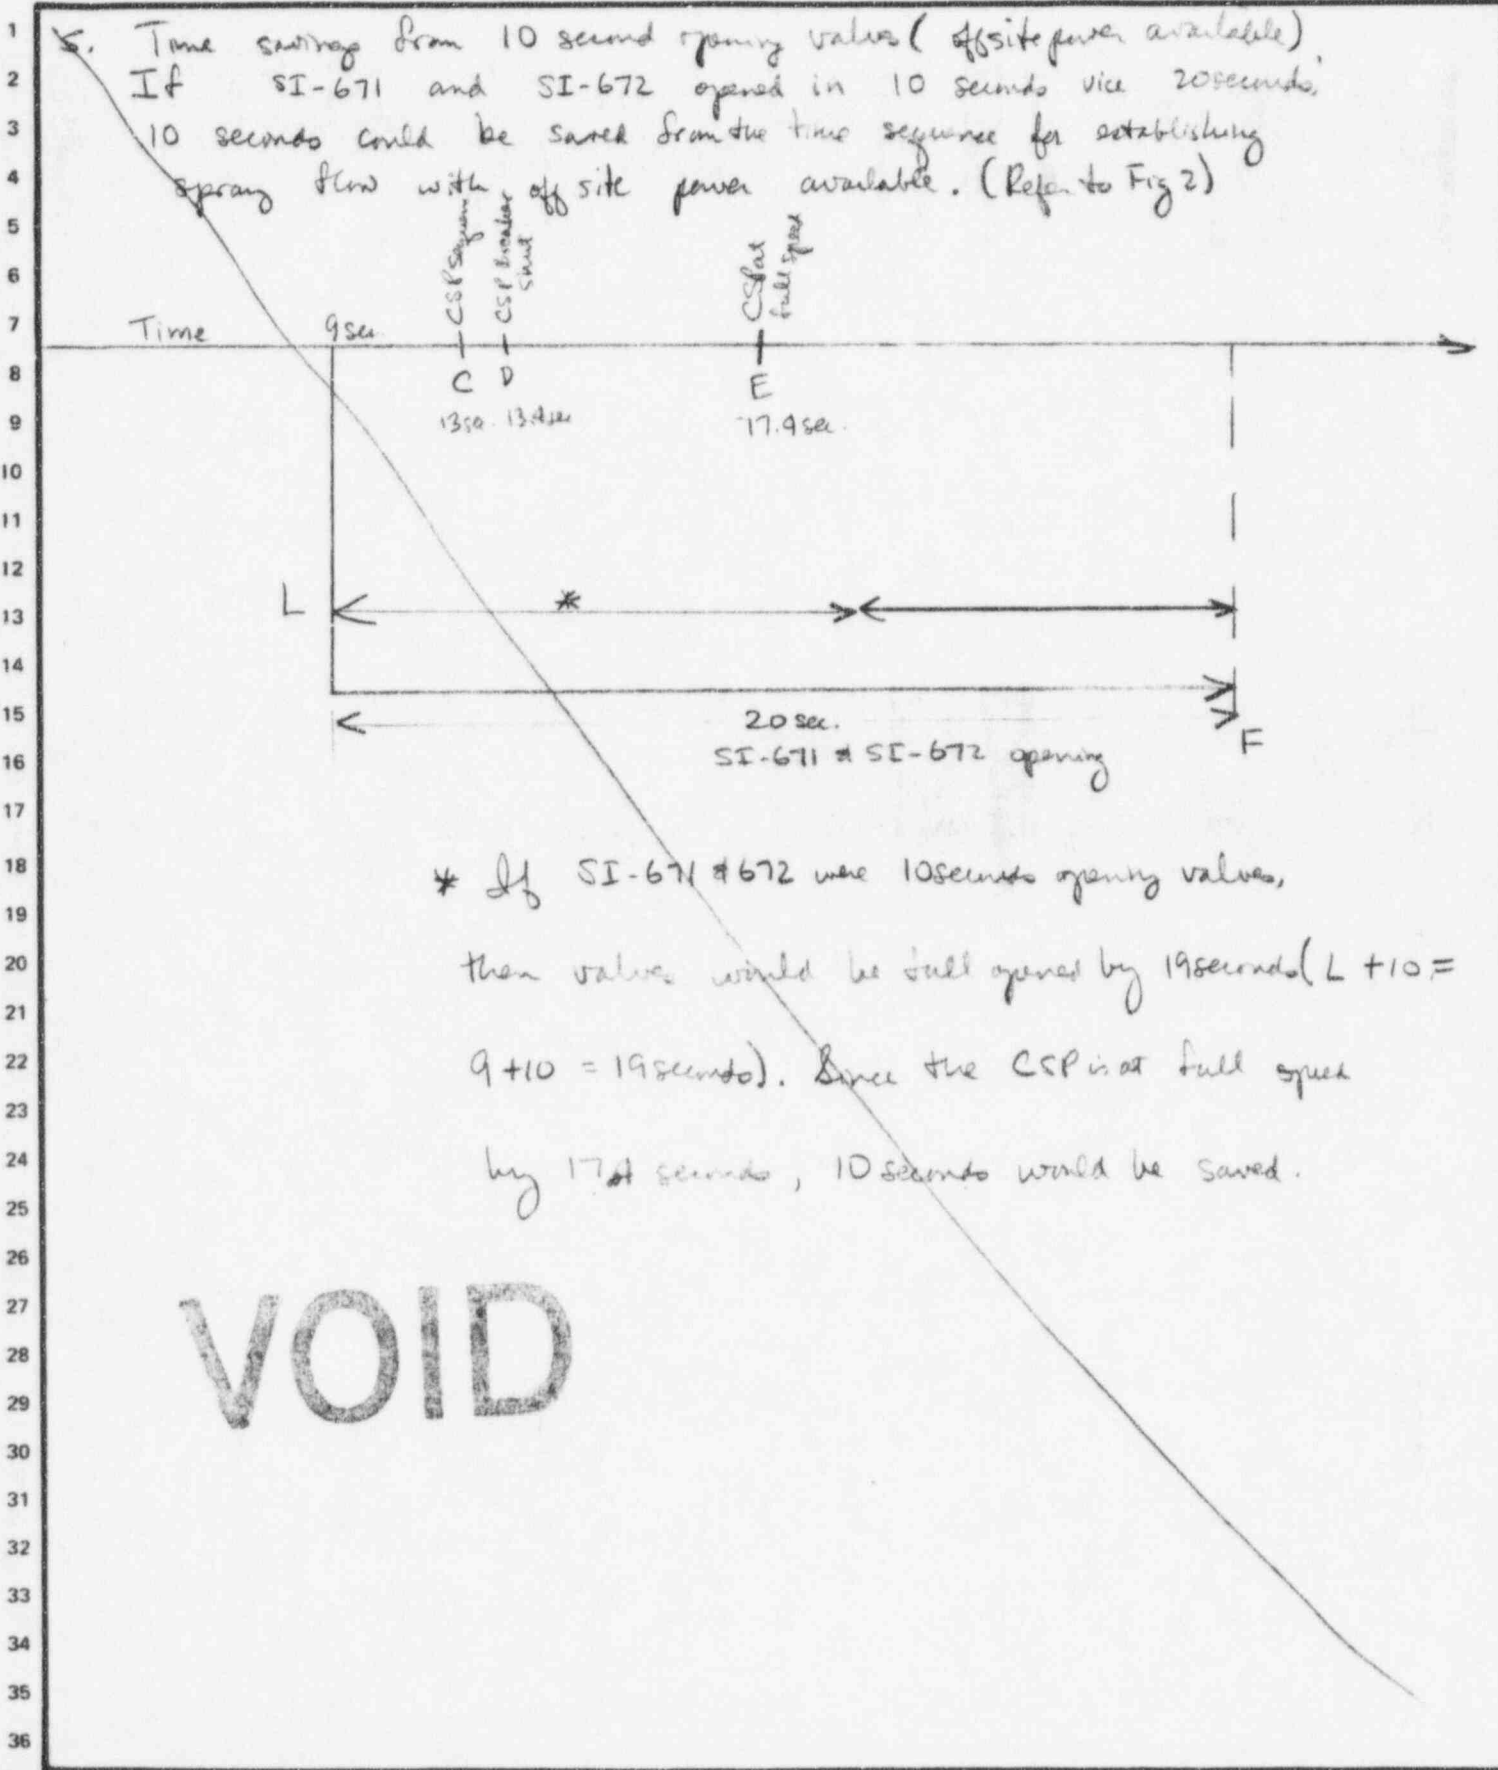 1
2
3
4
5
6
7
8
9
10
11
12
13
14
15
16
17
18
19
20
21
22
23
24
25
26
27
28
29
30
31
32
33
34
35
36
5. Time savings from 10 second opening valves (offsite power available)
If SI-671 and SI-672 opened in 10 seconds vice 20 seconds,
10 seconds could be saved from the time sequence for establishing
spray flow with off site power available. (Refer to Fig 2)
CSP sequen
CSP breaker
shut
CSP at
full speed
Time 9 sec
C D E
13 sec. 13.4 sec 17.4 sec.
L *
20 sec.
SI-671 & SI-672 opening F
* If SI-671 & 672 were 10 seconds opening valves,
then valves would be full opened by 19 seconds (L + 10 =
9 + 10 = 19 seconds). Since the CSP is at full speed
by 17.4 seconds, 10 seconds would be saved.
VOID